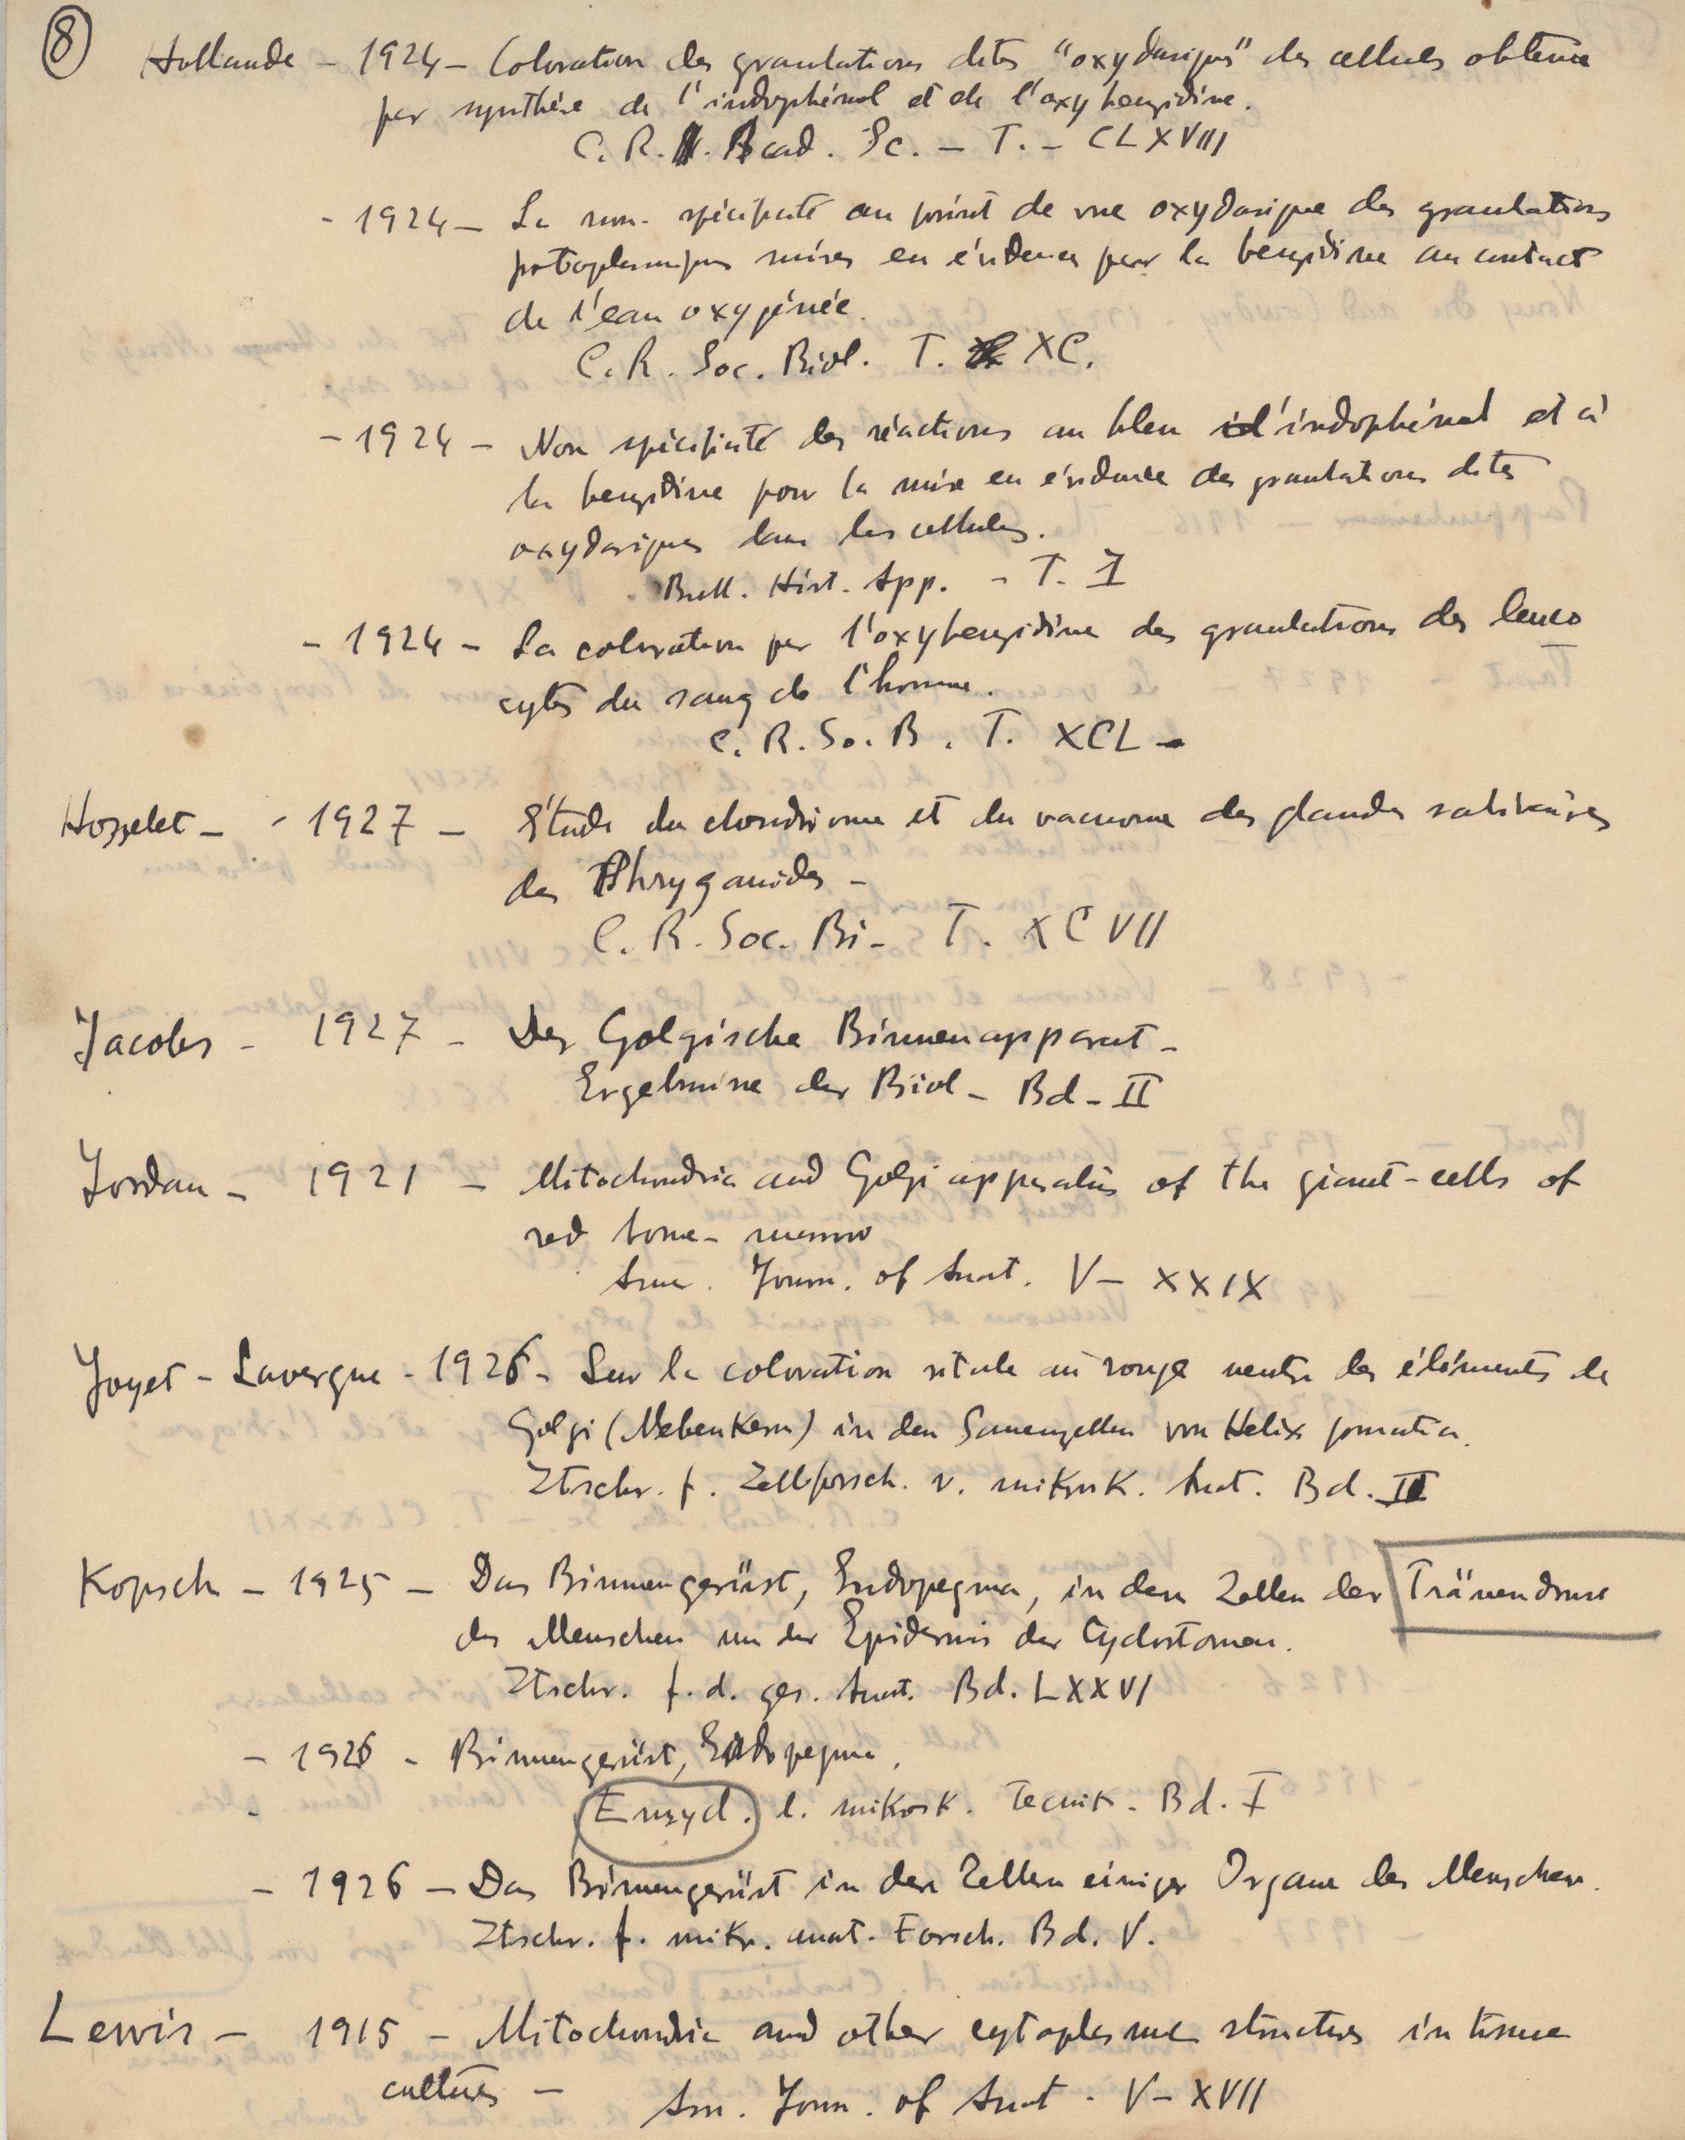 8
Hollande – 1924 – Coloration des granulations dites "oxydasiques" des cellules obtenue
par synthèse de l'indophénol et de l'oxybenzidine.
C. R. Acad. Sc. – T. – CLXVIII
- 1924 – La non-spécificité au point de vue oxydasique des granulations
protoplasmiques mises en évidence par la benzidine au contact
de l'eau oxygénée.
C. R. Soc. Biol. T. XC.
- 1924 – Non spécificité des réactions au bleu d'indophénol et à
la benzidine pour la mise en évidence des granulations dites
oxydasiques dans les cellules.
Bull. Hist. App. – T. I
- 1924 – La coloration par l'oxybenzidine des granulations des leuco
cytes du sang de l'homme.
C. R. So. B. T. XCL –
Hosselet – - 1927 – Étude du chondriome et du vacuome des glandes salivaires
des Phryganides –
C. R. Soc. Bi – T. XCVII
Jacobs – 1927 – Der Golgische Binnenapparat –
Ergebnisse der Biol – Bd – II
Jordan – 1921 – Mitochondria and Golgi apparatus of the giant-cells of
red bone-marrow
Am. Journ. of Anat. V – XXIX
Joyet-Lavergne - 1926 – Sur la coloration vitale au rouge neutre des éléments de
Golgi (Nebenkern) in den Samenzellen von Helix pomatia.
Ztschr. f. Zellforsch. u. mikrok. Anat. Bd. II
Kopsch – 1925 – Das Binnengerüst, Endopegma, in den Zellen der Tränendruse
des Menschen un der Epidermis der Cyclostomen.
Ztschr. f. d. ges. Anat. Bd. LXXVI
- 1926 - Binnengerüst, Endopegma,
- Enzycl. d. mikrosk. Tecnik. Bd. I
- 1926 – Das Binnengerüst in den Zellen einiger Organe des Menschen.
Ztschr. f. mikr. anat. Forsch. Bd. V.
Lewis – 1915 – Mitochondria and other cytoplasmic structures in tissue
cultures –
Am. Journ. of Anat. V – XVII